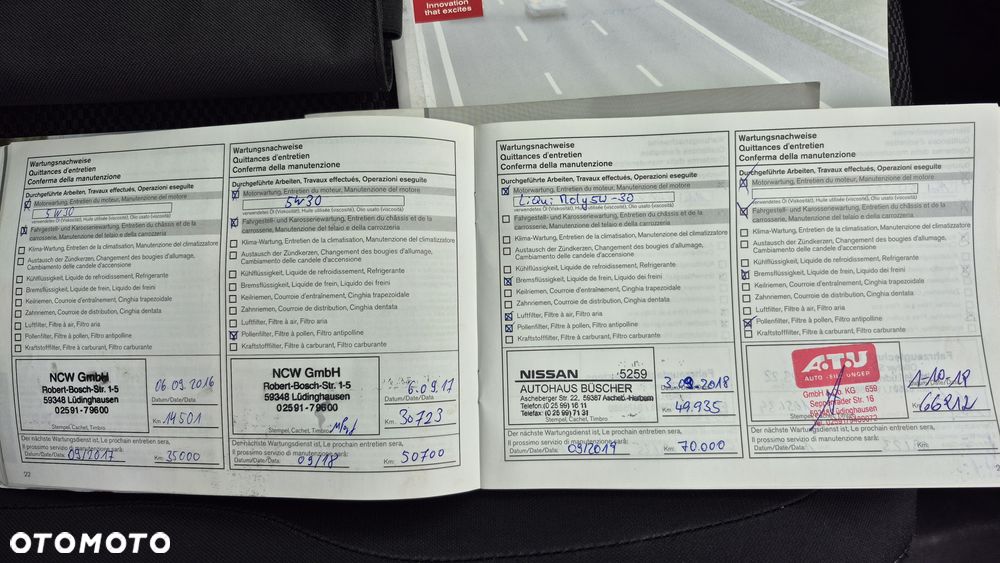 Innovation
that excites
Wartungsnachweise
Quittances d'entretien
Conferma della manutenzione
Durchgeführte Arbeiten, Travaux effectués, Operazioni eseguite
Motorwartung, Entretien du moteur, Manutenzione del motore
5W30
verwendetes Öl (Viskosität), Huile utilisée (viscosité), Olio usato (viscosità)
Fahrgestell- und Karosseriewartung, Entretien du châssis et de la
carrosserie, Manutenzione del telaio e della carrozzeria
Klima-Wartung, Entretien de la climatisation, Manutenzione del climatizzatore
Austausch der Zündkerzen, Changement des bougies d'allumage,
Cambiamento delle candele d'accensione
Kühlflüssigkeit, Liquide de refroidissement, Refrigerante
Bremsflüssigkeit, Liquide de frein, Liquido dei freni
Keilriemen, Courroie d'entraînement, Cinghia trapezoidale
Zahnriemen, Courroie de distribution, Cinghia dentata
Luftfilter, Filtre à air, Filtro aria
Pollenfilter, Filtre à pollen, Filtro antipolline
Kraftstofffilter, Filtre à carburant, Filtro carburante
NCW GmbH
Robert-Bosch-Str. 1-5
59348 Lüdinghausen
02591-79600
06.09.2016
Datum/Date/Data
Km 19501
Stempel, Cachet, Timbro
Der nächste Wartungsdienst ist, Le prochain entretien sera,
Il prossimo servizio di manutenzione sarà:
Datum/Date/Data: 09/2017 Km: 35000
22
Wartungsnachweise
Quittances d'entretien
Conferma della manutenzione
Durchgeführte Arbeiten, Travaux effectués, Operazioni eseguite
Motorwartung, Entretien du moteur, Manutenzione del motore
5W30
verwendetes Öl (Viskosität), Huile utilisée (viscosité), Olio usato (viscosità)
Fahrgestell- und Karosseriewartung, Entretien du châssis et de la
carrosserie, Manutenzione del telaio e della carrozzeria
Klima-Wartung, Entretien de la climatisation, Manutenzione del climatizzatore
Austausch der Zündkerzen, Changement des bougies d'allumage,
Cambiamento delle candele d'accensione
Kühlflüssigkeit, Liquide de refroidissement, Refrigerante
Bremsflüssigkeit, Liquide de frein, Liquido dei freni
Keilriemen, Courroie d'entraînement, Cinghia trapezoidale
Zahnriemen, Courroie de distribution, Cinghia dentata
Luftfilter, Filtre à air, Filtro aria
Pollenfilter, Filtre à pollen, Filtro antipolline
Kraftstofffilter, Filtre à carburant, Filtro carburante
NCW GmbH
Robert-Bosch-Str. 1-5
59348 Lüdinghausen
02591-79600
6.09.17
Datum/Date/Data
Km 30723
Stempel, Cachet, Timbro
Der nächste Wartungsdienst ist, Le prochain entretien sera,
Il prossimo servizio di manutenzione sarà:
Datum/Date/Data: 09/18 Km: 50700
Wartungsnachweise
Quittances d'entretien
Conferma della manutenzione
Durchgeführte Arbeiten, Travaux effectués, Operazioni eseguite
Motorwartung, Entretien du moteur, Manutenzione del motore
Liqui Moly 5W-30
verwendetes Öl (Viskosität), Huile utilisée (viscosité), Olio usato (viscosità)
Fahrgestell- und Karosseriewartung, Entretien du châssis et de la
carrosserie, Manutenzione del telaio e della carrozzeria
Klima-Wartung, Entretien de la climatisation, Manutenzione del climatizzatore
Austausch der Zündkerzen, Changement des bougies d'allumage,
Cambiamento delle candele d'accensione
Kühlflüssigkeit, Liquide de refroidissement, Refrigerante
Bremsflüssigkeit, Liquide de frein, Liquido dei freni
Keilriemen, Courroie d'entraînement, Cinghia trapezoidale
Zahnriemen, Courroie de distribution, Cinghia dentata
Luftfilter, Filtre à air, Filtro aria
Pollenfilter, Filtre à pollen, Filtro antipolline
Kraftstofffilter, Filtre à carburant, Filtro carburante
NISSAN 5259
AUTOHAUS BÜSCHER
Ascheberger Str. 22, 59387 Ascheb.-Herbern
Telefon: (0 25 99) 16 11
Telefax: (0 25 99) 71 31
3.09.2018
Datum/Date/Data
Km 49.935
Stempel, Cachet, Timbro
Der nächste Wartungsdienst ist, Le prochain entretien sera,
Il prossimo servizio di manutenzione sarà:
Datum/Date/Data: 09/2019 Km: 70.000
Wartungsnachweise
Quittances d'entretien
Conferma della manutenzione
Durchgeführte Arbeiten, Travaux effectués, Operazioni eseguite
Motorwartung, Entretien du moteur, Manutenzione del motore
verwendetes Öl (Viskosität), Huile utilisée (viscosité), Olio usato (viscosità)
Fahrgestell- und Karosseriewartung, Entretien du châssis et de la
carrosserie, Manutenzione del telaio e della carrozzeria
Klima-Wartung, Entretien de la climatisation, Manutenzione del climatizzatore
Austausch der Zündkerzen, Changement des bougies d'allumage,
Cambiamento delle candele d'accensione
Kühlflüssigkeit, Liquide de refroidissement, Refrigerante
Bremsflüssigkeit, Liquide de frein, Liquido dei freni
Keilriemen, Courroie d'entraînement, Cinghia trapezoidale
Zahnriemen, Courroie de distribution, Cinghia dentata
Luftfilter, Filtre à air, Filtro aria
Pollenfilter, Filtre à pollen, Filtro antipolline
Kraftstofffilter, Filtre à carburant, Filtro carburante
A.T.U
GmbH & Co. KG 659
Seppenrader Str. 16
59348 Lüdinghausen
Datum/Date/Data
Km 66212
Stempel, Cachet, Timbro
Der nächste Wartungsdienst ist, Le prochain entretien sera,
Il prossimo servizio di manutenzione sarà:
Datum/Date/Data: Km:
OTOMOTO